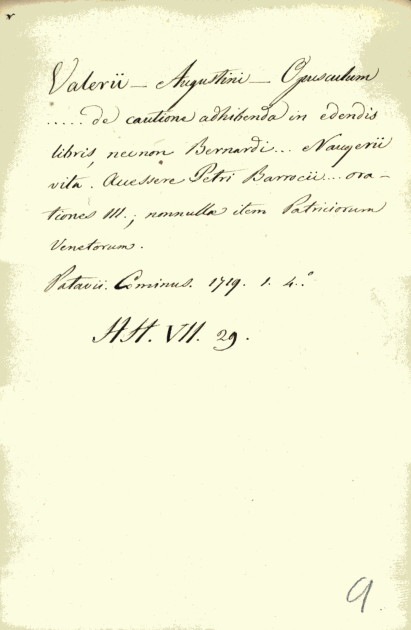 Valerii – Augustini – Opusculum
..... de cautione adhibenda in edendis
libris, necnon Bernardi... Naugerii
vita. Accessere Petri Barrocii... ora-
tiones III.; nonnullæ item Patriciorum
Venetorum.
Patavii. Cominus. 1719. 1. 4.°
HH. VII. 29.
9.